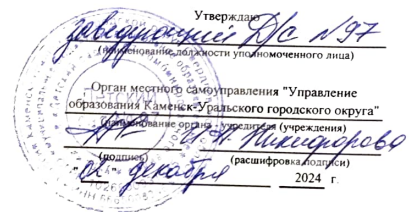 Утверждаю
заведующий Д/с №97
(наименование должности уполномоченного лица)
Орган местного самоуправления "Управление
образования Каменск-Уральского городского округа"
(наименование органа - учредителя (учреждения)
Никифорова
(подпись) (расшифровка подписи)
02 декабря 2024 г.